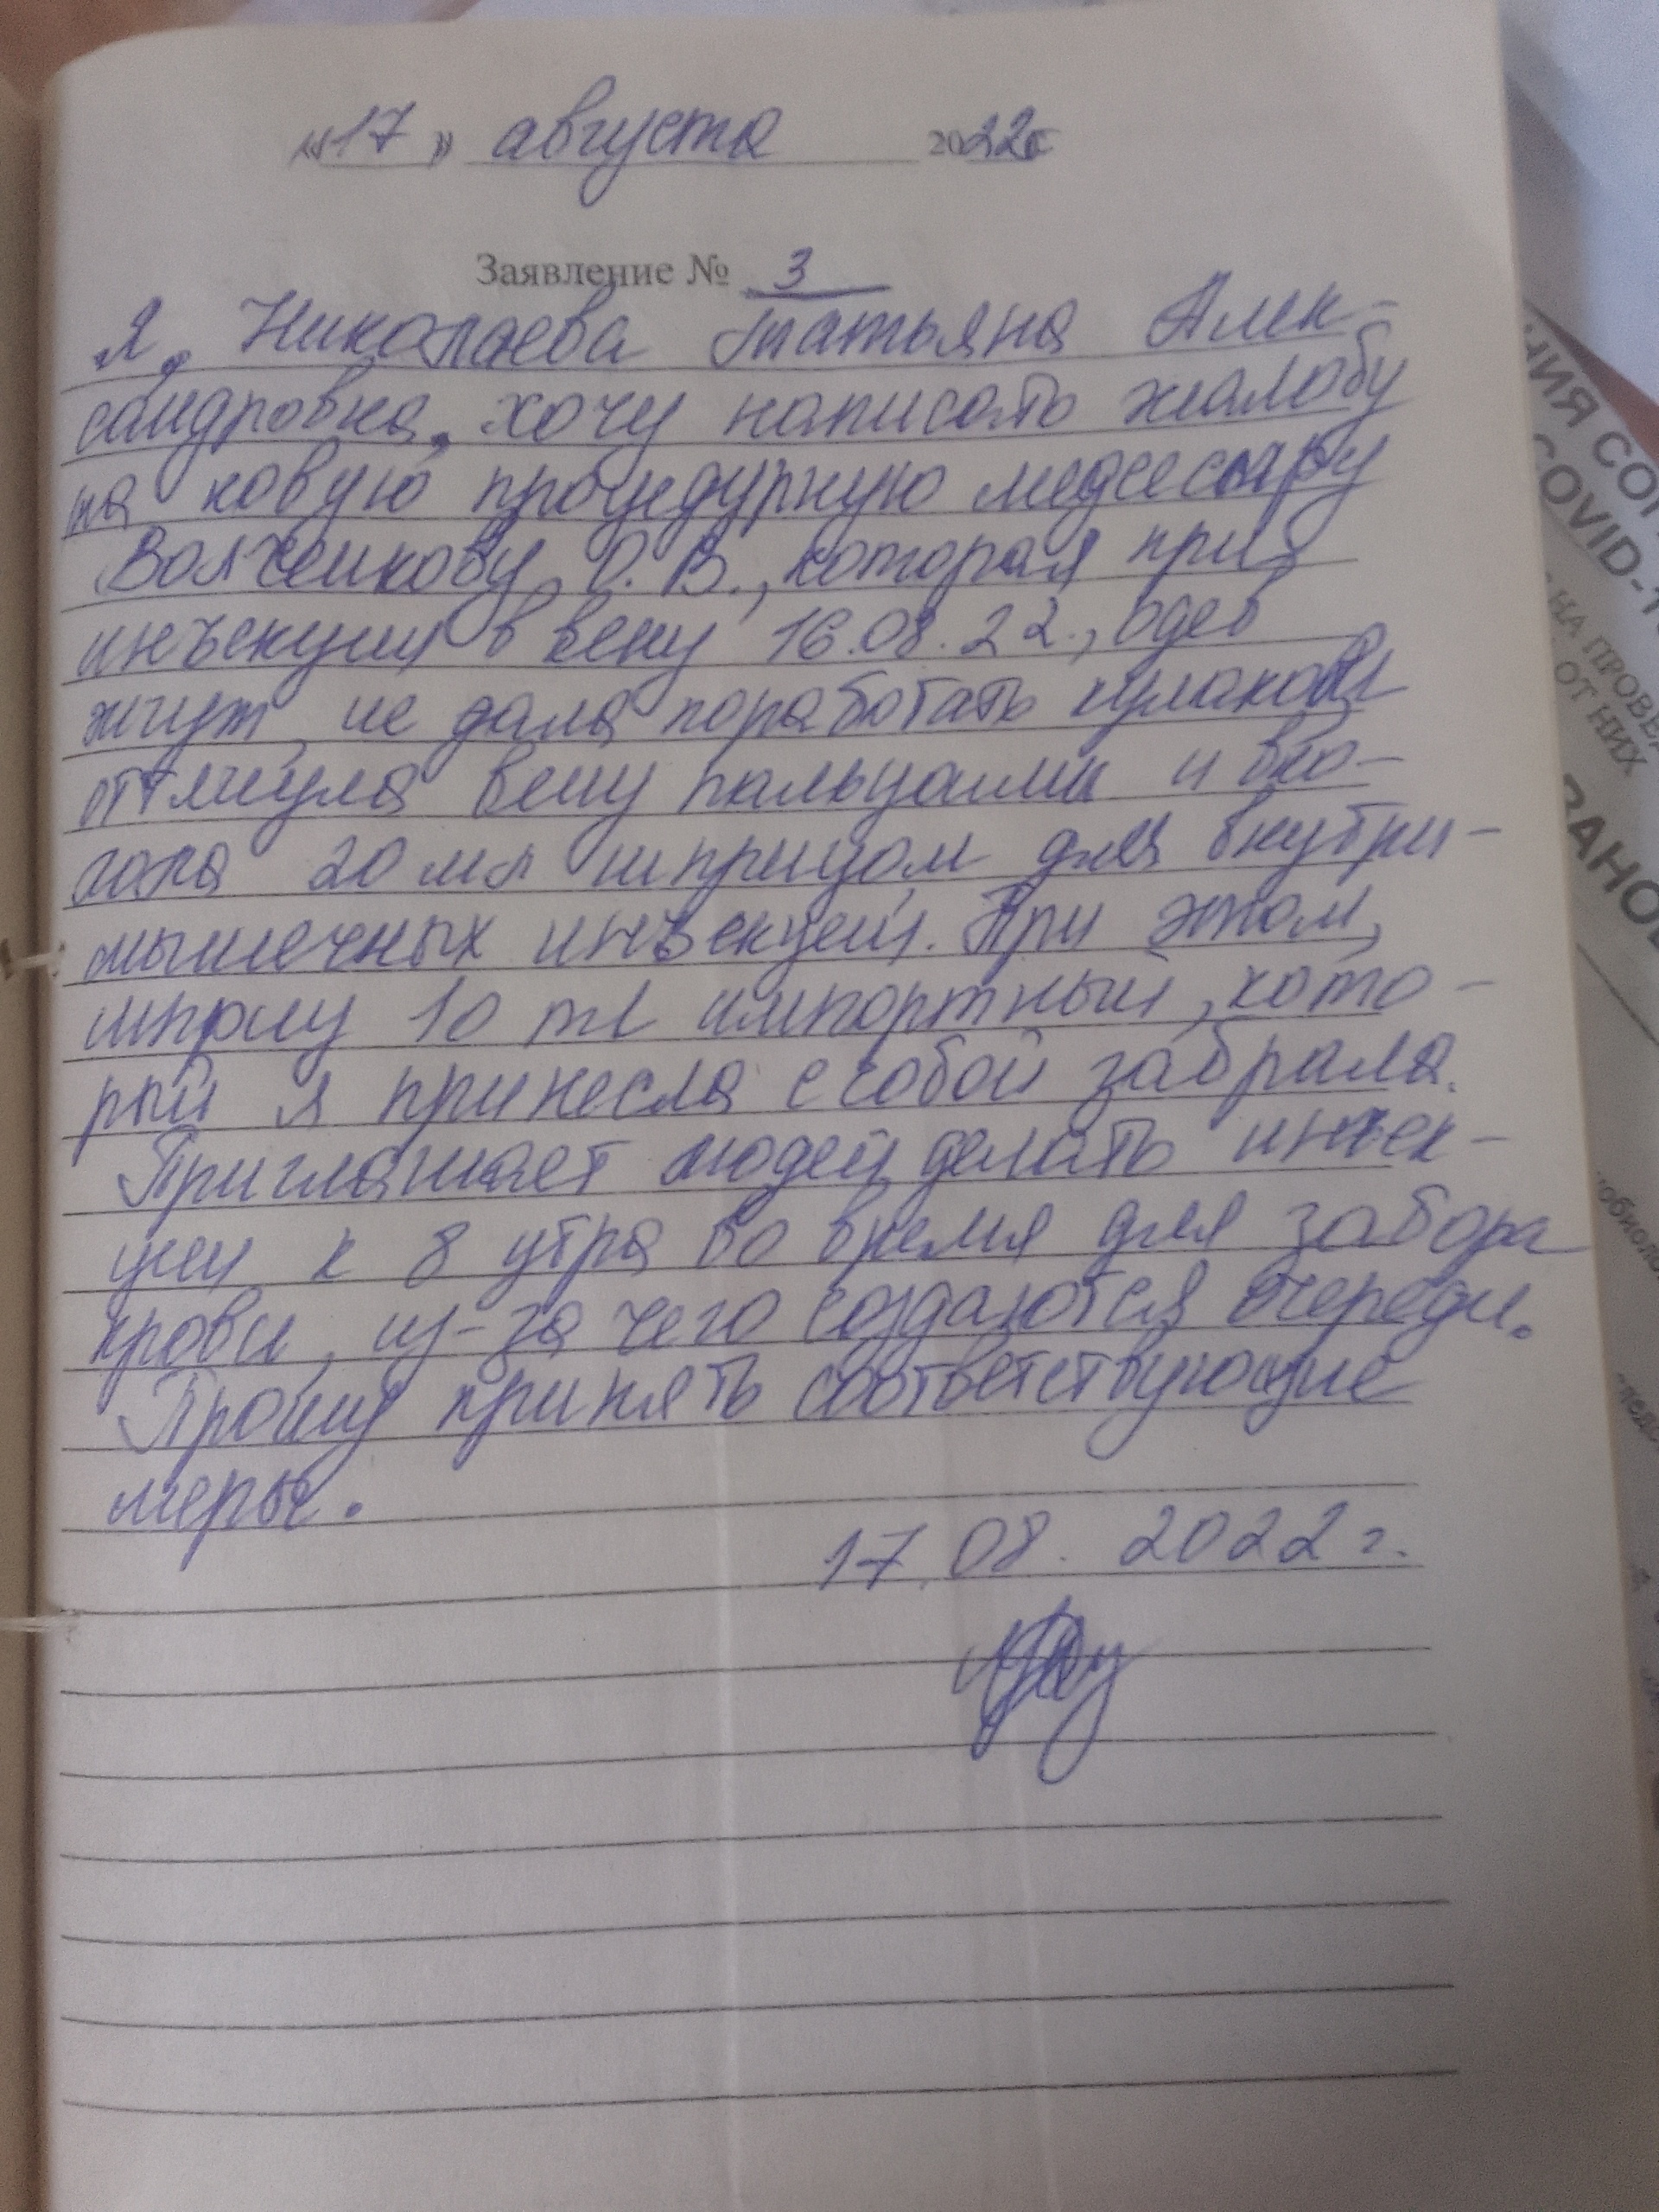 «17» августа 2022г
Заявление № 3
Я, Николаева Татьяна Алек-
сандровна, хочу написать жалобу
на новую процедурную медсестру
Волченкову О. В., которая при
инъекции в вену 16.08.22., одев
жгут, не дала поработать кулаком
оттянула вену пальцами и вко-
лола 20 мл шприцом для внутри-
мышечных инъекций. При этом,
шприц 10 ml импортный, кото-
рый я принесла с собой забрала.
Приглашает людей делать инъек-
ции к 8 утра во время для забора
крови, из-за чего создаются очереди.
Прошу принять соответствующие
меры.
17.08.2022 г.
НИЯ
COVID-1
НА ПРОВЕ
ОТ НИХ
ВАНО